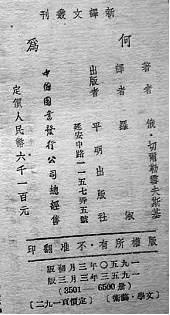 新譯文叢刊
何為
著者 俄·切爾勒雪夫斯基
譯者 羅淑
出版者 平明出版社
延安中路一一五七弄五號
中國圖書發行公司總經售
定價人民幣六千一百元
版權所有·不准翻印
一九五〇年三月初版
一九五三年三月三版
(3501—6500册)
(類鶴·學文) [定價頁一九二]